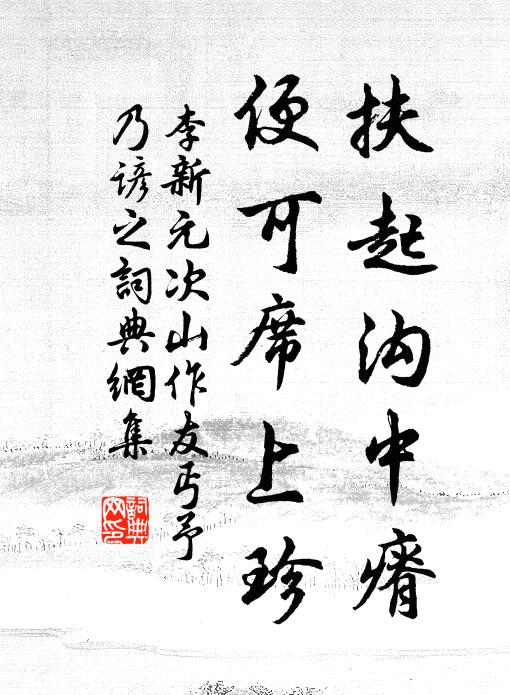 扶起沟中瘠
便可席上珍
李新元次山作友丐予
乃谚之詞典網集
詞典网印